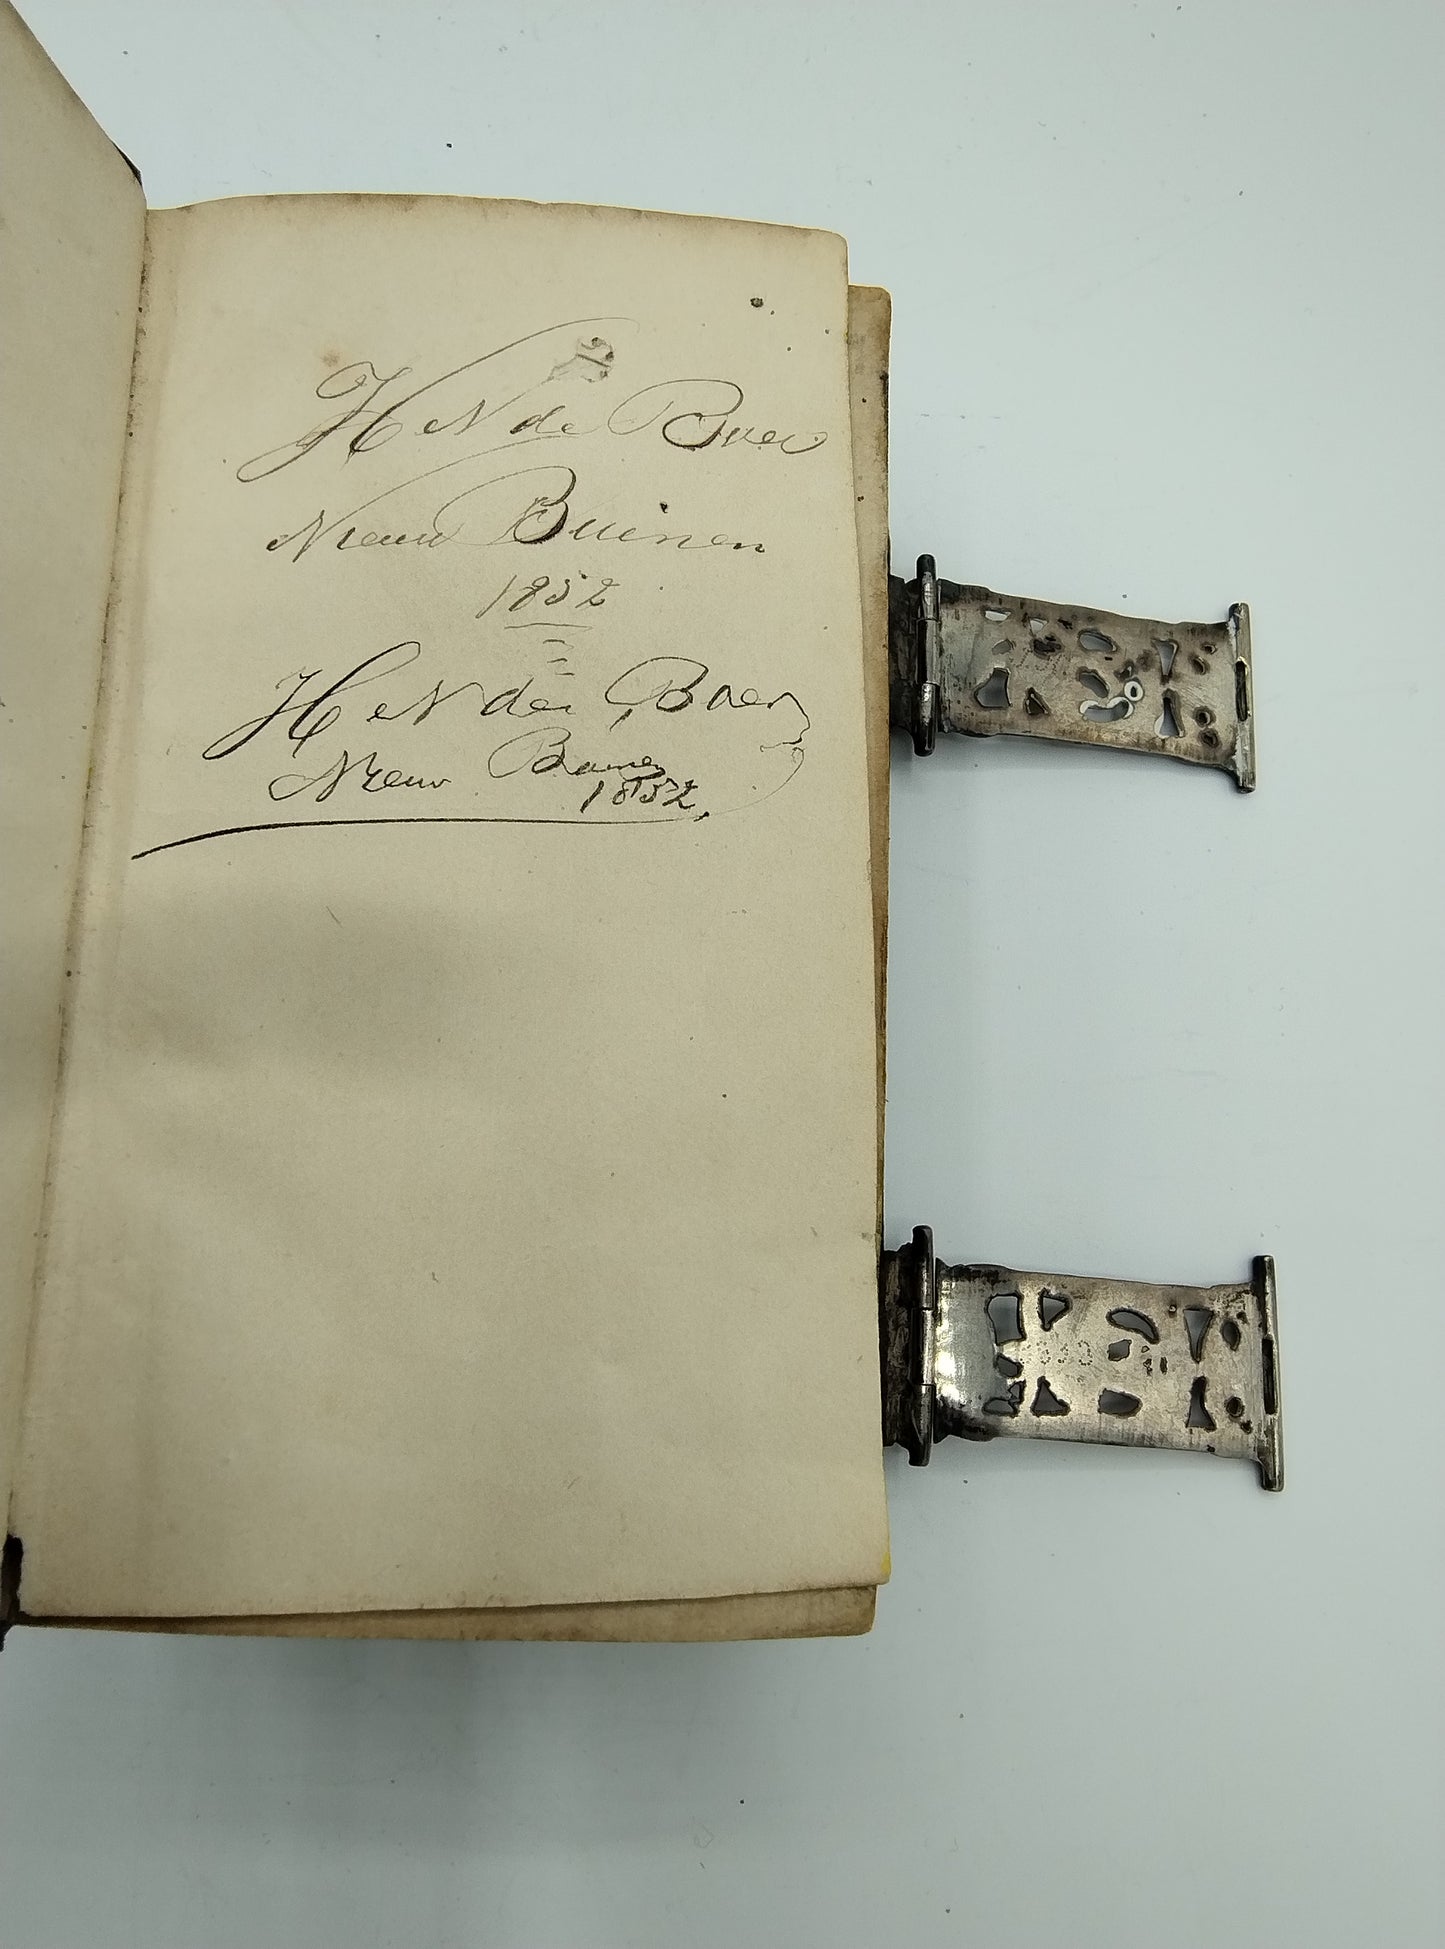 H N de Boer
Nieuw Buinen
1852
H N de Boer
Nieuw Buinen
1852